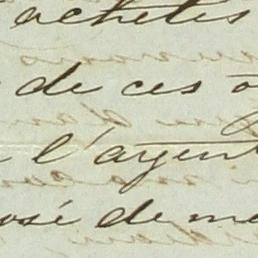 achetés
de ces o
l'argent
osé de me